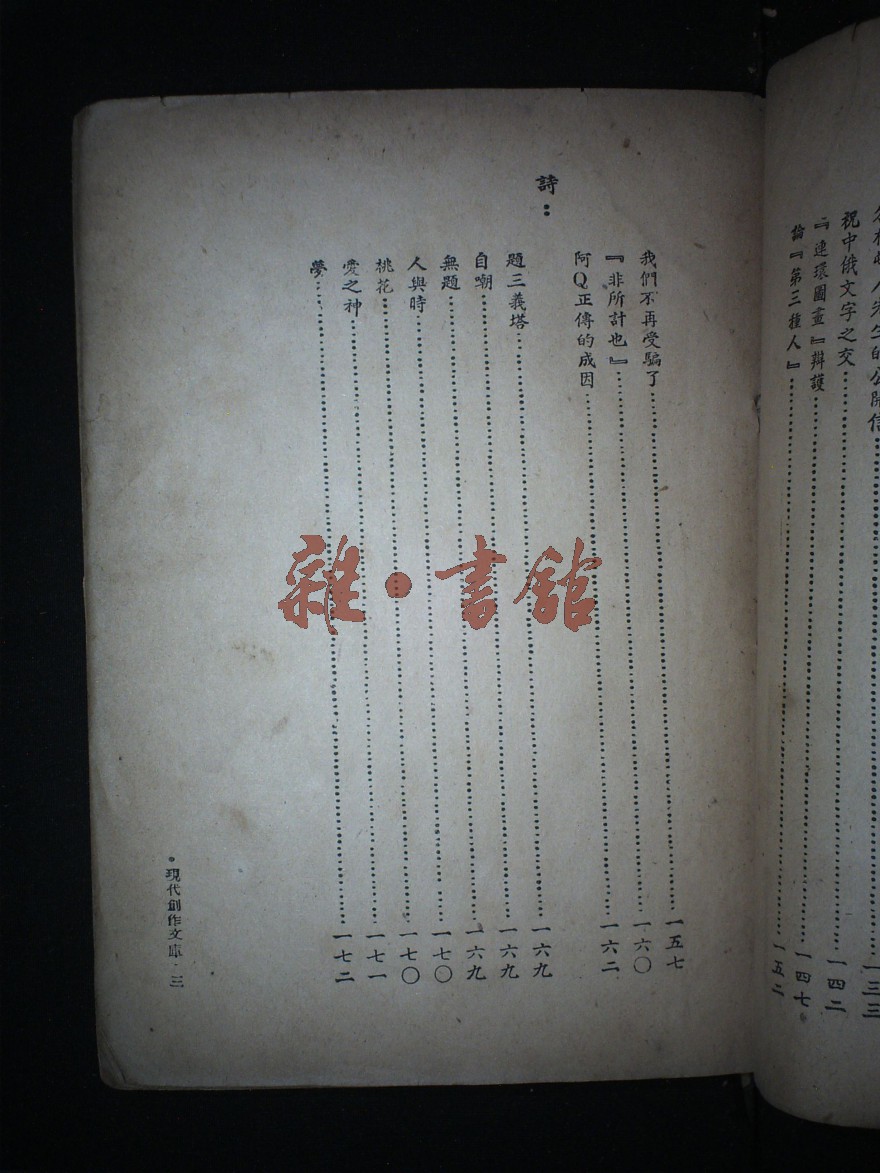 人先生的公開信……一三三
祝中俄文字之交……一四二
『連環圖畫』辯護……一四七
論『第三種人』……一五二
我們不再受騙了……一五七
『非所計也』……一六〇
阿Q正傳的成因……一六二
詩：
題三義塔……一六九
自嘲……一六九
無題……一六九
人與時……一七〇
桃花……一七〇
愛之神……一七一
夢……一七二
•現代創作文庫·三
雜·書館